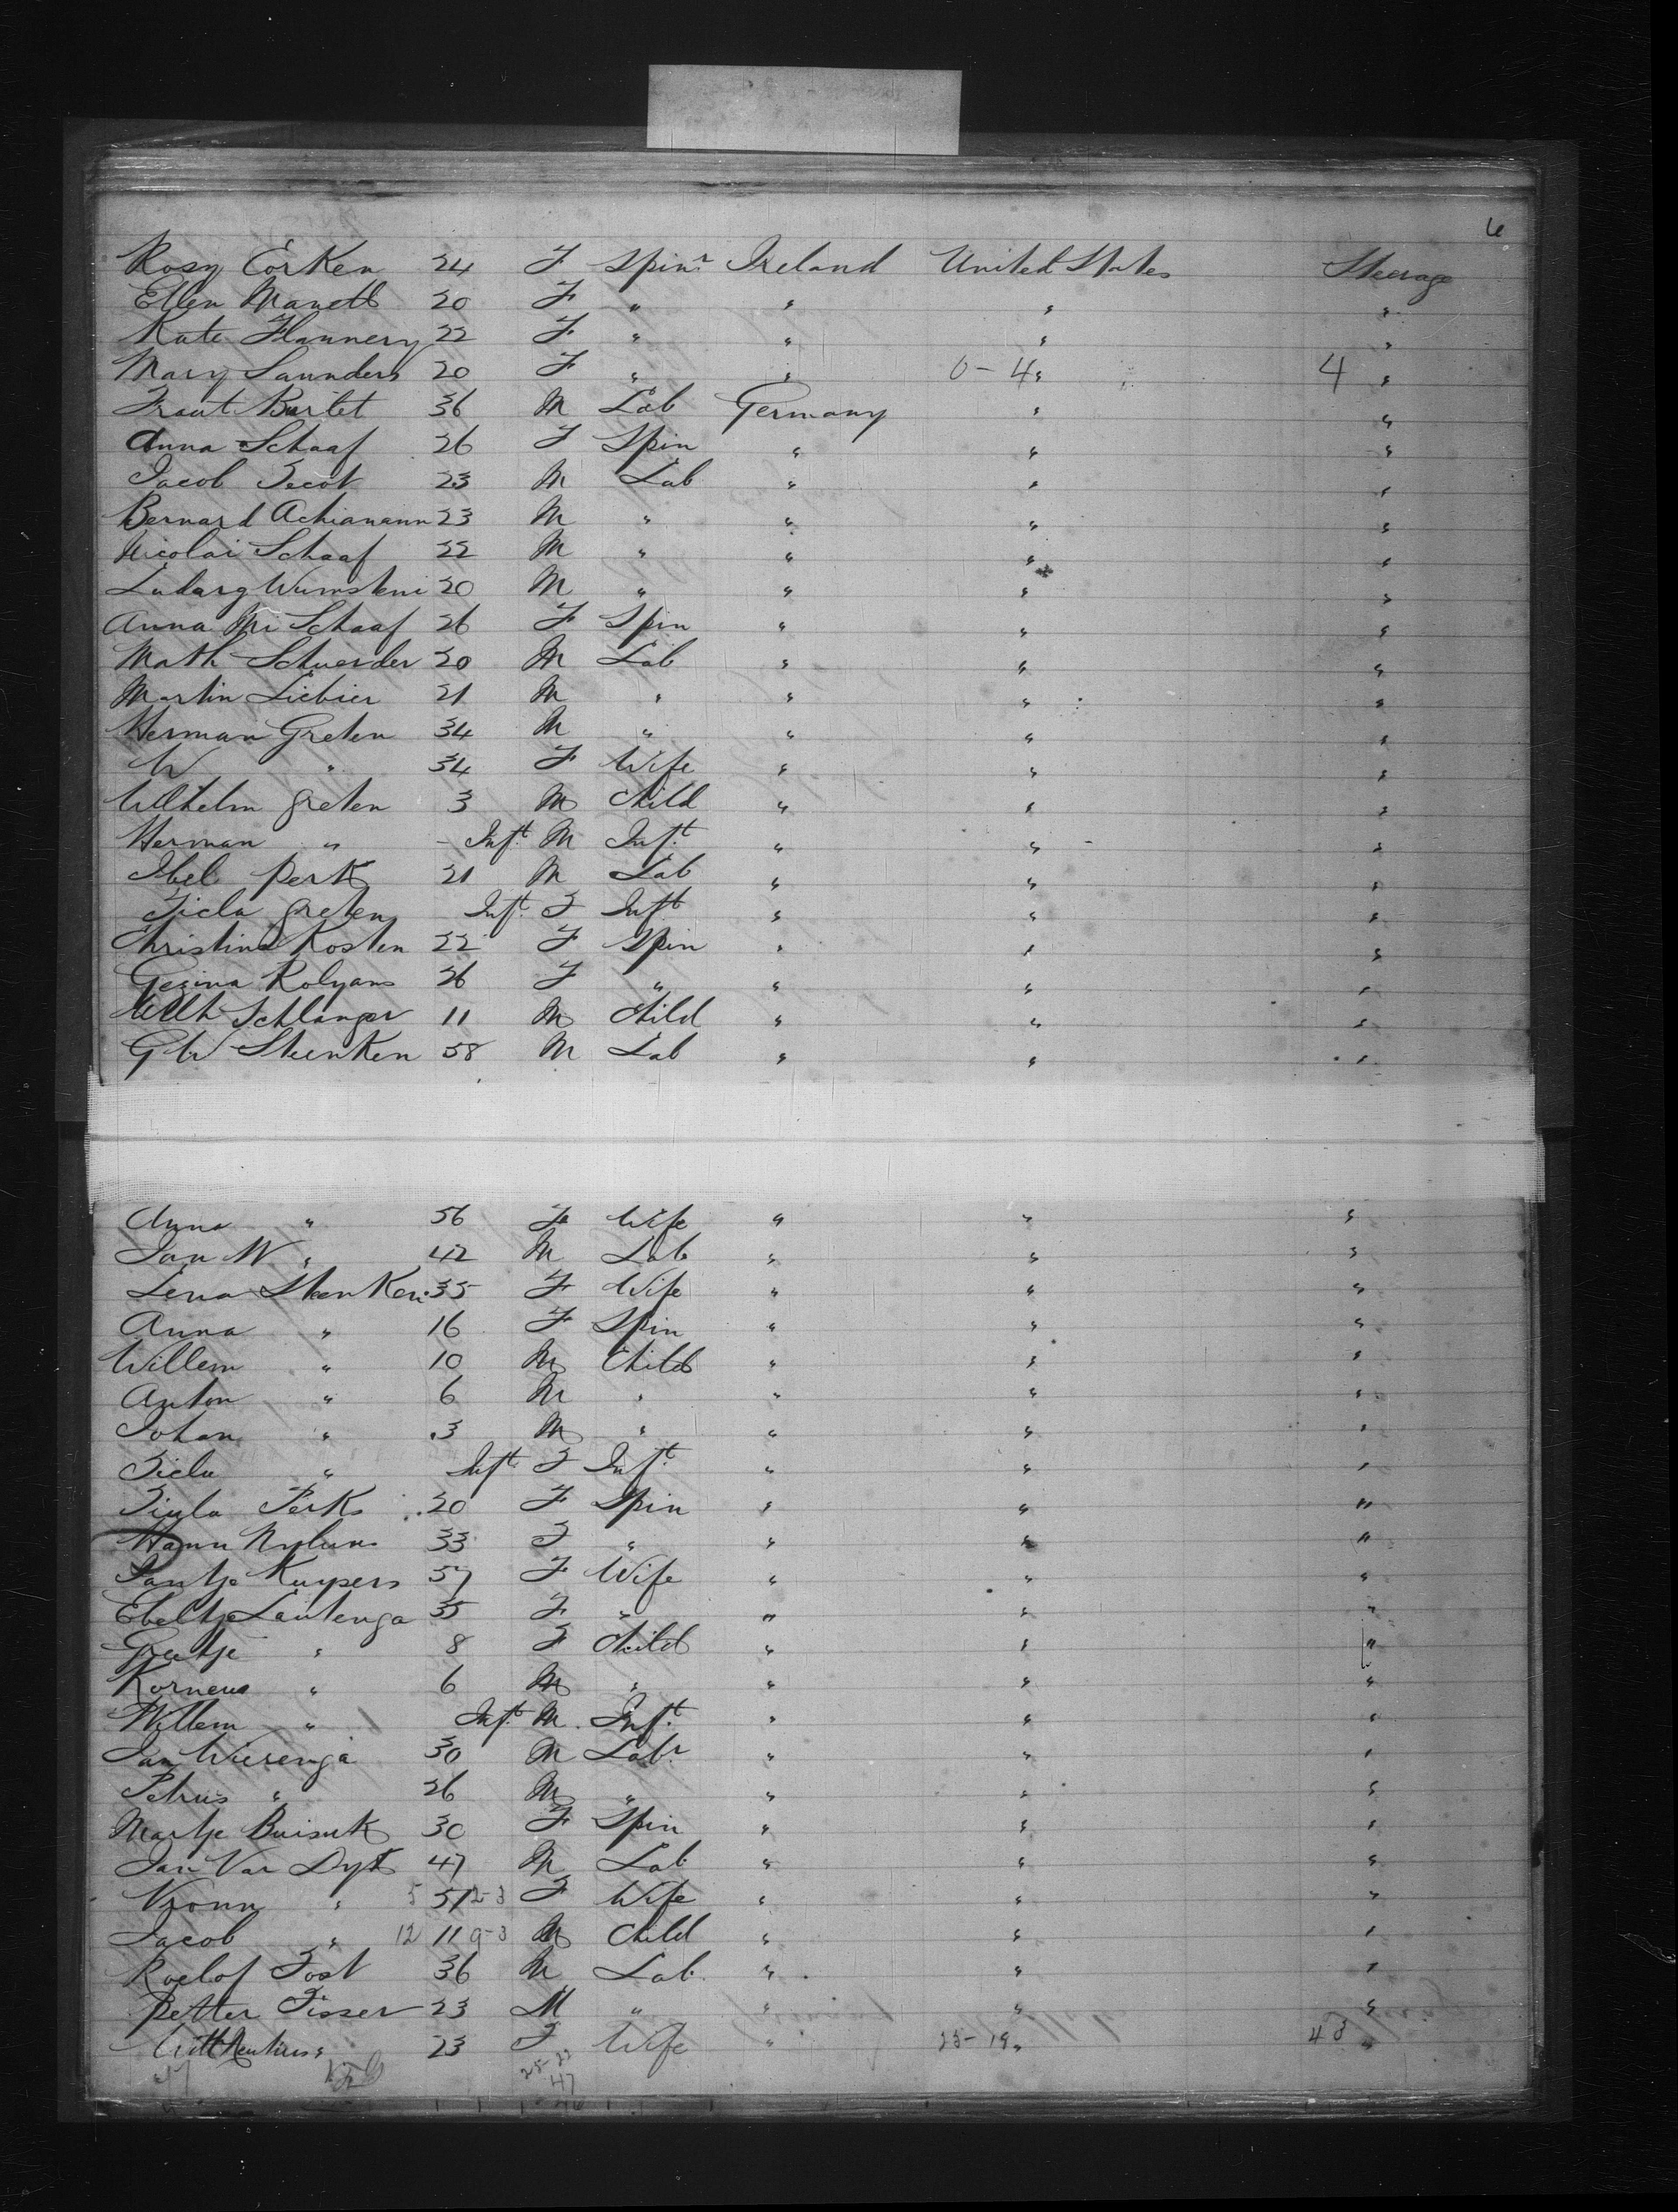 6
Rosy Corken 24 F Spinr Ireland United States Steerage
Ellen Manett 20 F " " " "
Kate Flannery 22 F " " " "
Mary Saunders 20 F " " 0-4 " 4 "
Traut Bartet 36 M Lab Germany " "
Anna Schaaf 26 F Spin " " "
Jacob Tecot 23 M Lab " " "
Bernard Achiamann 23 M " " " "
Nicolai Schaaf 22 M " " " "
Ludarg Wumsteni 20 M " " " "
Anna Mi Schaaf 26 F Spin " " "
Math Schuerder 20 M Lab " " "
Martin Liebier 21 M " " " "
Herman Greten 34 M " " " "
W " 34 F Wife " " "
Wilhelm Greten 3 M Child " " "
Herman " Inft M Inft " " "
Ibel Perk 21 M Lab " " "
Ticla Greten Inft F Inft " " "
Christina Kosten 22 F Spin " " "
Gezina Rolyans 26 F " " " "
Wilh Schlanger 11 M Child " " "
G W Steenken 58 M Lab " " "
Anna " 56 F Wife " " "
Jan W " 42 M Lab " " "
Lena Steenken 35 F Wife " " "
Anna " 16 F Spin " " "
Willem " 10 M Child " " "
Anton " 6 M " " " "
Johan " 3 M " " " "
Ticla " Inft F Inft " " "
Tiula Perks 20 F Spin " " "
Hann 33 F " " " "
Jantje Kuypers 57 F Wife " " "
Ebeltje Lautenga 35 F " " " "
Greetje " 8 F Child " " "
Korneus " 6 M " " " "
Willem " Inft M Inft " " "
Jan Wierenga 30 M Labr " " "
Petrus " 26 M " " " "
Martje Buisuk 30 F Spin " " "
Jan Van Dyk 47 M Lab " " "
Vronn " 5 51 2-3 F Wife " " "
Jacob " 12 11 9-3 M Child " " "
Roelof Tost 36 M Lab " " "
Petter Tisser 23 M " " " "
23 F Wife " 25-19 " 43 "
25-22
47